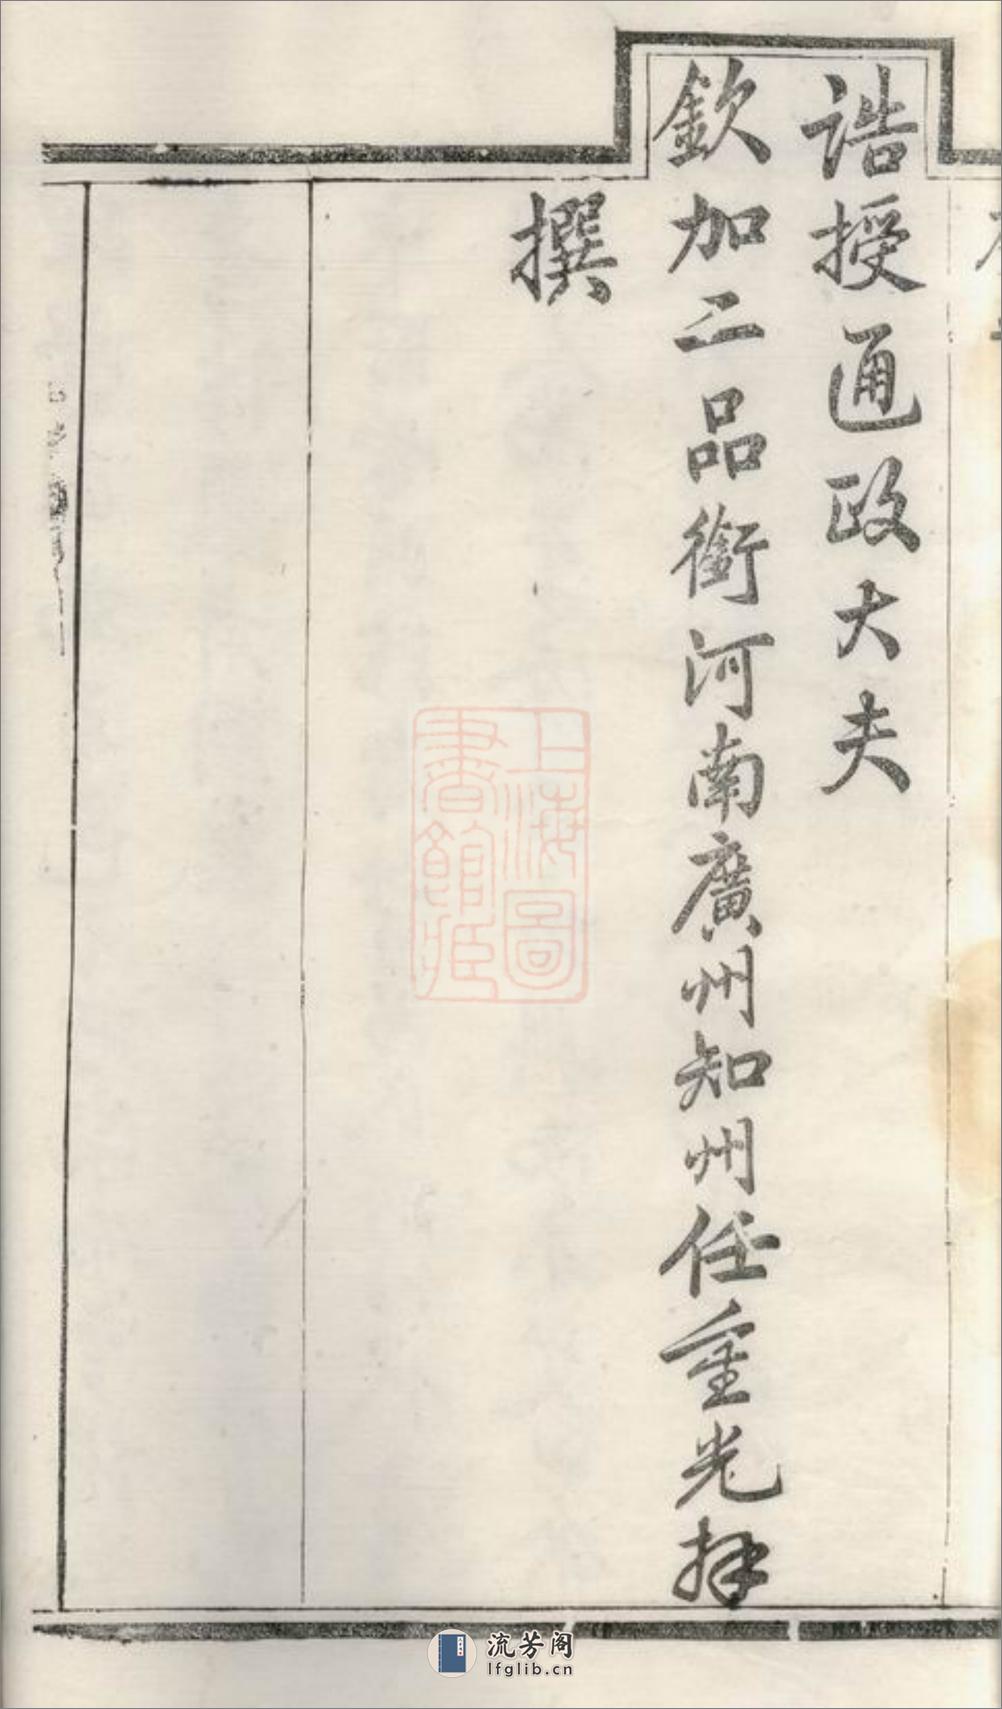 誥授通政大夫
欽加二品銜河南廣州知州任重光拜
撰
上海圖
書館藏
流芳阁
lfglib.cn